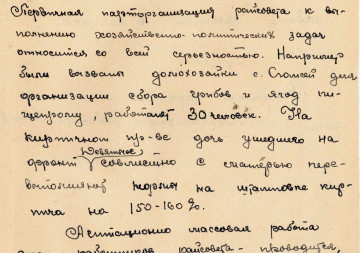 Первичная парторганизация райсовета к вы-
полнению хозяйственно-политических задач
относится со всей серьезностью. Например
были вызваны домохозяйки с. для
организации сбора грибов и ягод пи-
щепрому, работает 30 человек. На
кирпичном дочь ушедшего на
фронт совместно с матерью пере-
выполняют нормы на штамповке кир-
пича на 150-160%.
Агитационно массовая работа
райсовета - проводится,